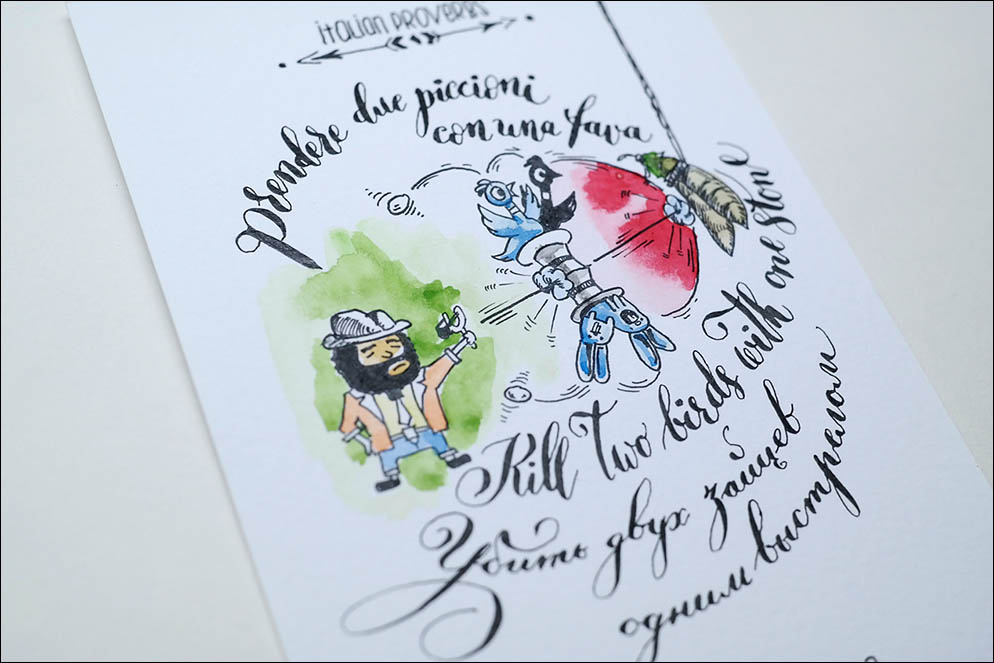 italian proverbs
Prendere due piccioni
con una fava
Kill Two birds with one stone
Убить двух зайцев
одним выстрелом